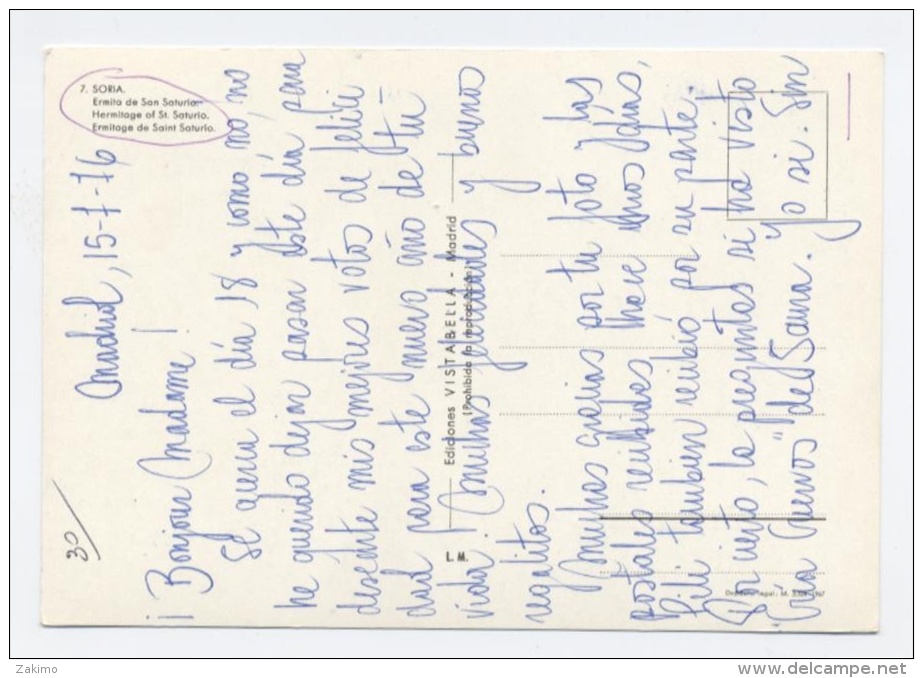 7. SORIA.
Ermita de San Saturio.
Hermitage of St. Saturio.
Ermitage de Saint Saturio.
30
Madrid, 15-7-76
¡Bonjour Madame!
Se acerca el día 18 y como no, no
he querido dejar pasar este día para
desearte mis mejores votos de felici
dad para este nuevo año de tú
vida. ¡Muchas felicidades y buenos
regalitos.
Muchas gracias por tu foto y las
postales recibidas hace unos días,
Pili tambien recibió por su parte,
Por cierto, la preguntas si ha visto
"Cría Cuervos" de Saura. Yo si. Sin
L. M.
Ediciones VISTABELLA - Madrid
(Prohibida la reproducción)
Depósito legal: M. 1967
Zakimo
www.delcampe.net